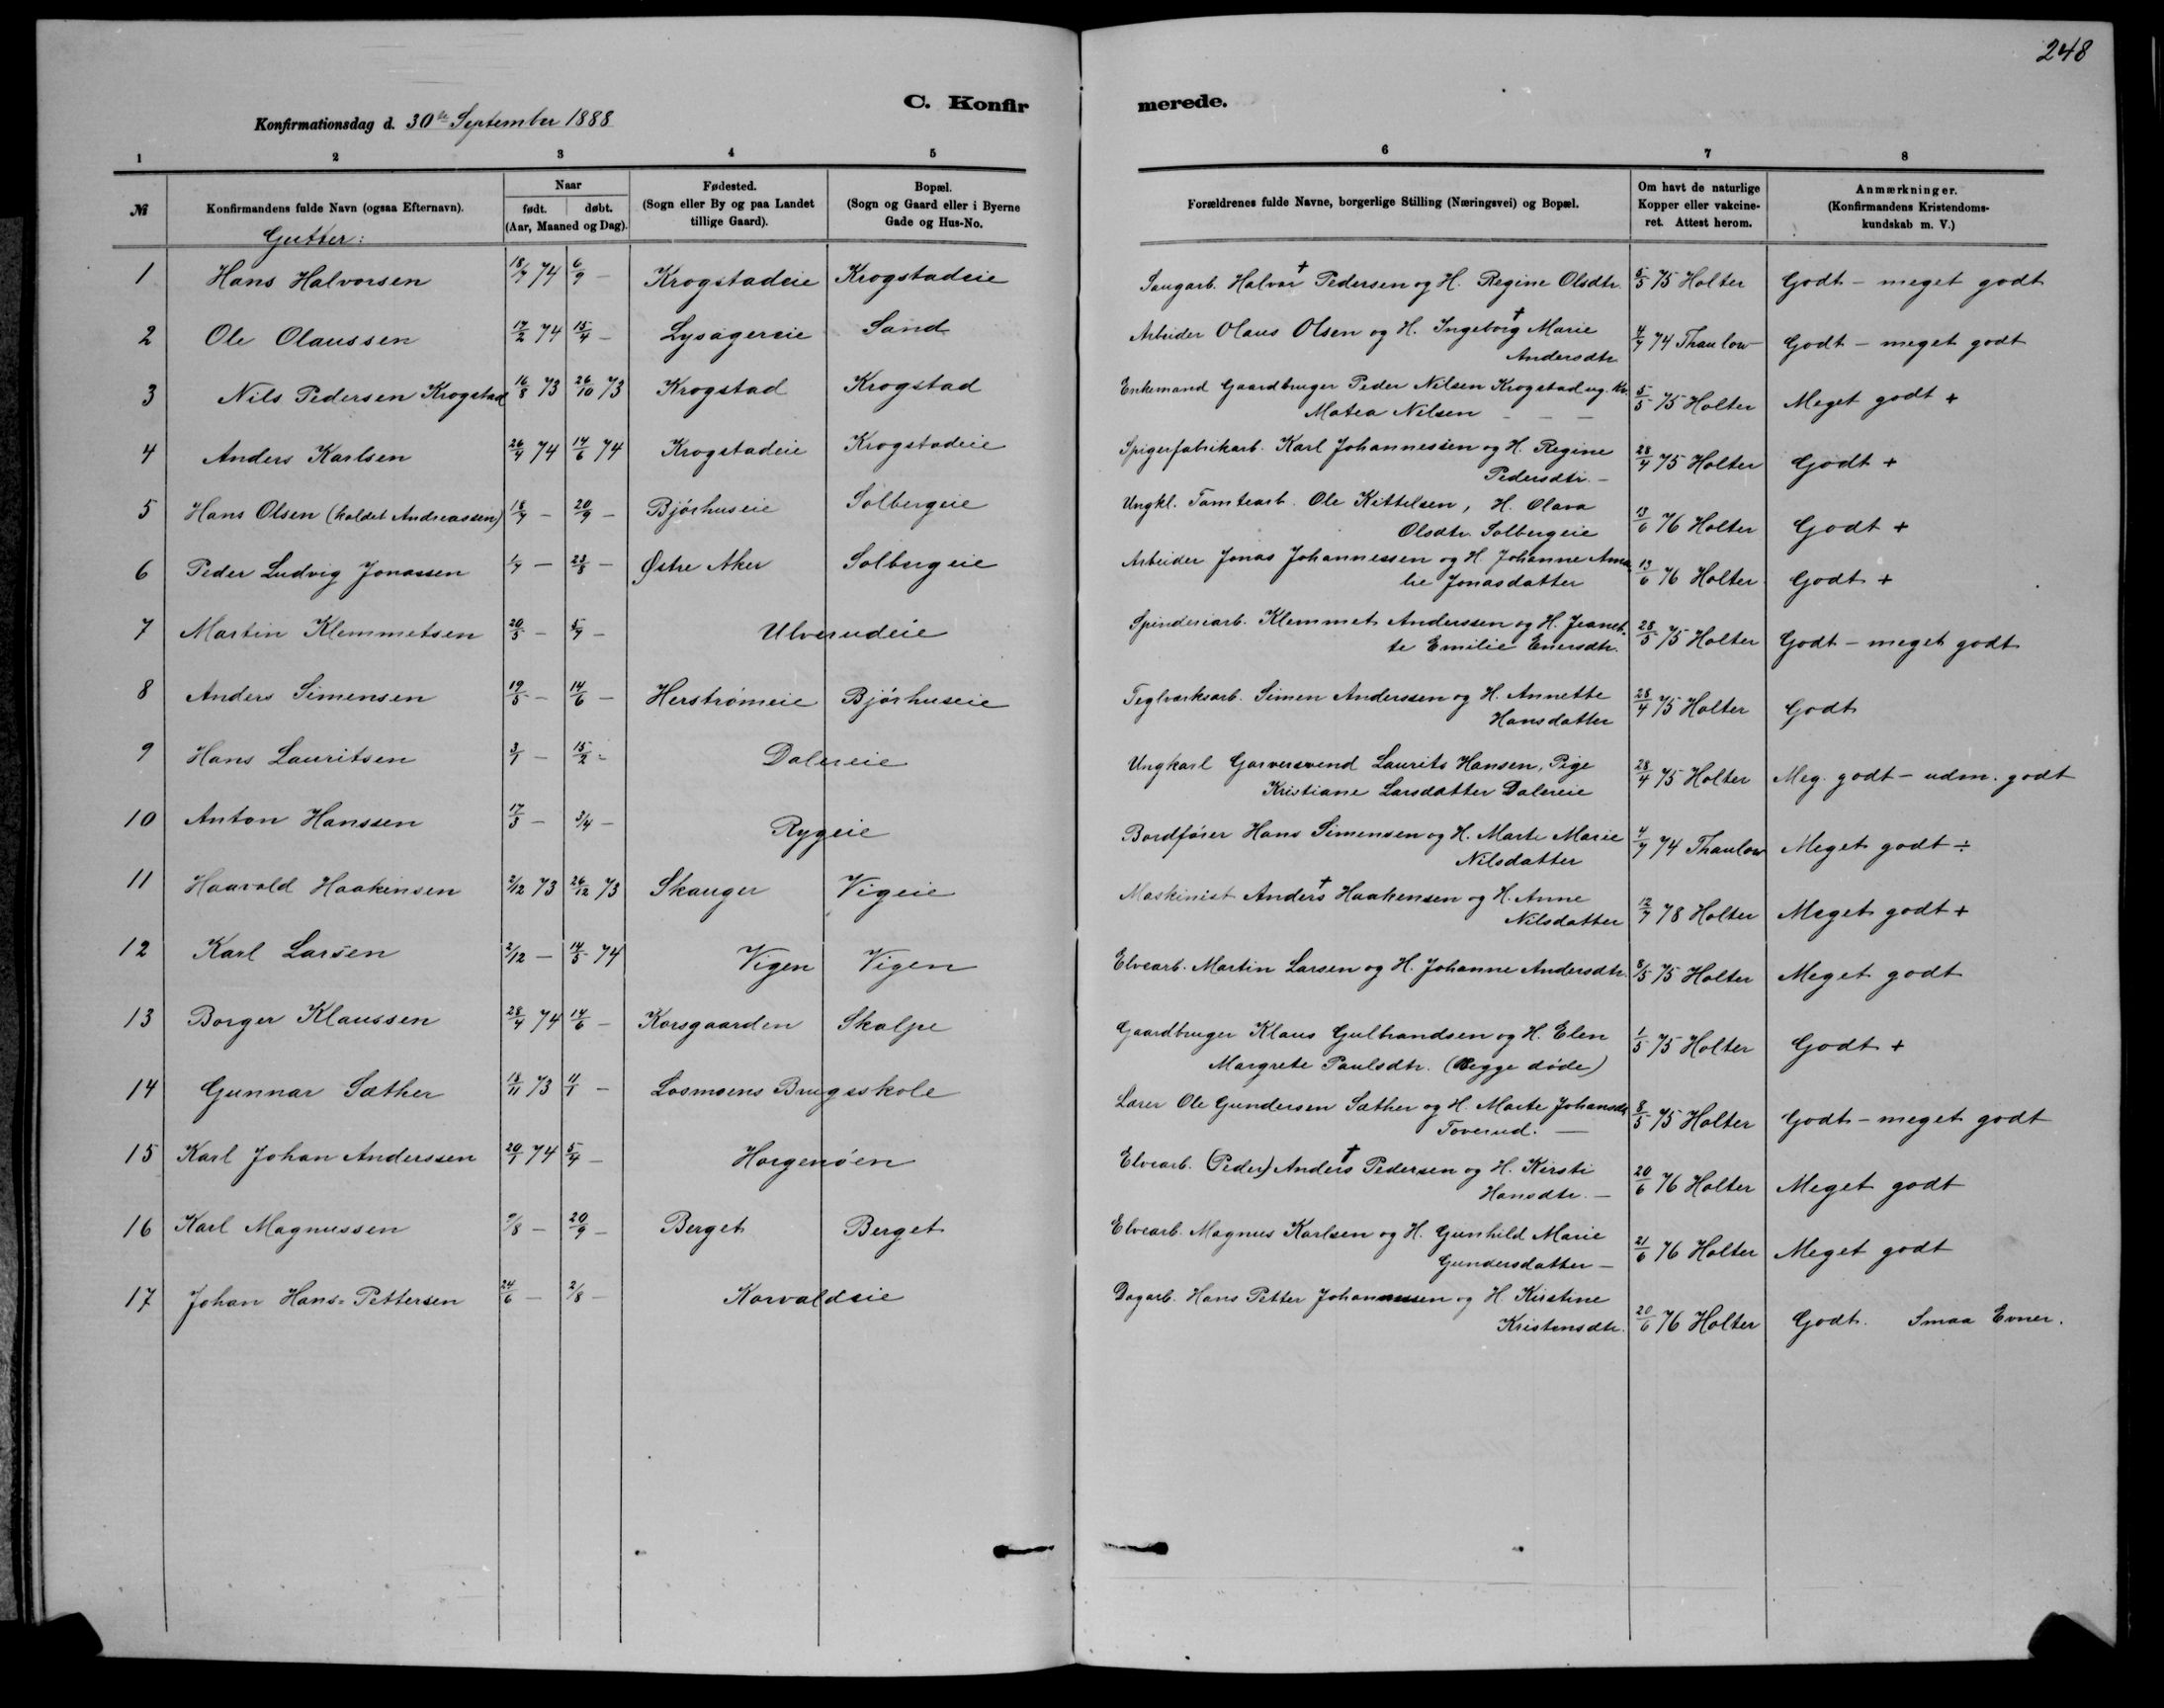 248
C. Konfir merede.
Konfirmationsdag d. 30te September 1888
1 2 3 4 5 6 7 8
№ Konfirmandens fulde Navn (ogsaa Efternavn). Naar født. døbt. (Aar, Maaned og Dag). Fødested. (Sogn eller By og paa Landet tillige Gaard). Bopæl. (Sogn og Gaard eller i Byerne Gade og Hus-No. Forældrenes fulde Navne, borgerlige Stilling (Næringsvei) og Bopæl. Om havt de naturlige Kopper eller vakcineret. Attest herom. Anmærkninger. (Konfirmandens Kristendomskundskab m. V.)
Gutter:
1 Hans Halvorsen 18/7 74 6/9 — Krogstadeie Krogstadeie Saugarb. Halvor † Pedersen og H. Regine Olsdtr. 5/5 75 Holter Godt - meget godt
2 Ole Olaussen 17/2 74 15/4 — Lysagereie Sand Arbeider Olaus Olsen og H. Ingeborg † Marie
Andersdtr 4/7 74 Thaulow Godt - meget godt
3 Nils Pedersen Krogstad 16/8 73 26/10 73 Krogstad Krogstad Enkemand Gaardbruger Peder Nilsen Krogstad ug. Kv.
Matea Nilsen — — — 5/5 75 Holter Meget godt +
4 Anders Karlsen 26/4 74 14/6 74 Krogstadeie Krogstadeie Spigerfabrikarb. Karl Johannessen og H. Regine
Pedersdtr. — 28/4 75 Holter Godt +
5 Hans Olsen (kaldet Andreassen) 18/7 — 20/9 — Bjørhuseie Solbergeie Ungkl. Tomtearb. Ole Kittelsen, H. Olava
Olsdtr. Solbergeie 13/6 76 Holter Godt +
6 Peder Ludvig Jonassen 1/7 — 23/8 — Østre Aker Solbergeie Arbeider Jonas Johannessen og H. Johanne Ama
lie Jonasdatter 13/6 76 Holter Godt +
7 Martin Klemmetsen 20/5 — 5/7 — Ulverudeie Spinderiarb. Klemmet Anderssen og H. Jeanet-
te Emilie Enersdtr. 28/5 75 Holter Godt - meget godt
8 Anders Simensen 19/5 — 14/6 — Herstrømeie Bjørhuseie Teglværksarb. Simen Anderssen og H. Annette
Hansdatter 28/4 75 Holter Godt
9 Hans Lauritsen 3/1 — 15/2 — Dalereie Ungkarl Garversvend Laurits Hansen, Pige
Kristiane Larsdatter Dalereie 28/4 75 Holter Meg. godt - udm. godt
10 Anton Hanssen 17/3 — 3/4 — Rygeie Bordfører Hans Simensen og H. Marte Marie
Nilsdatter 4/7 74 Thaulow Meget godt ÷
11 Haavald Haakensen 2/12 73 26/12 73 Skauger Vigeie Maskinist Anders † Haakensen og H. Anne
Nilsdatter 12/7 78 Holter Meget godt +
12 Karl Larsen 2/12 — 14/5 74 Vigen Vigen Elvearb. Martin Larsen og H. Johanne Andersdtr. 8/5 75 Holter Meget godt
13 Borger Klaussen 28/4 74 14/6 — Korsgaarden Skalpe Gaardbruger Klaus Gulbrandsen og H. Elen
Margrete Paulsdtr. (Begge døde) 1/5 75 Holter Godt +
14 Gunnar Sæther 18/11 73 11/1 — Losmoens Brugsskole Lærer Ole Gundersen Sæther og H. Marte Johansdtr
Toverud. — 8/5 75 Holter Godt - meget godt
15 Karl Johan Anderssen 20/1 74 5/4 — Horgenøen Elvearb. (Peder) Anders † Pedersen og H. Kirsti
Hansdtr. — 20/6 76 Holter Meget godt
16 Karl Magnussen 9/8 — 20/9 — Berget Berget Elvearb. Magnus Karlsen og H. Gunhild Marie
Gundersdatter — 21/6 76 Holter Meget godt
17 Johan Hans-Pettersen 24/6 — 2/8 — Korvaldeie Dagarb. Hans Petter Johannessen og H. Kirstine
Kristensdtr. 20/6 76 Holter Godt. Smaa Evner.